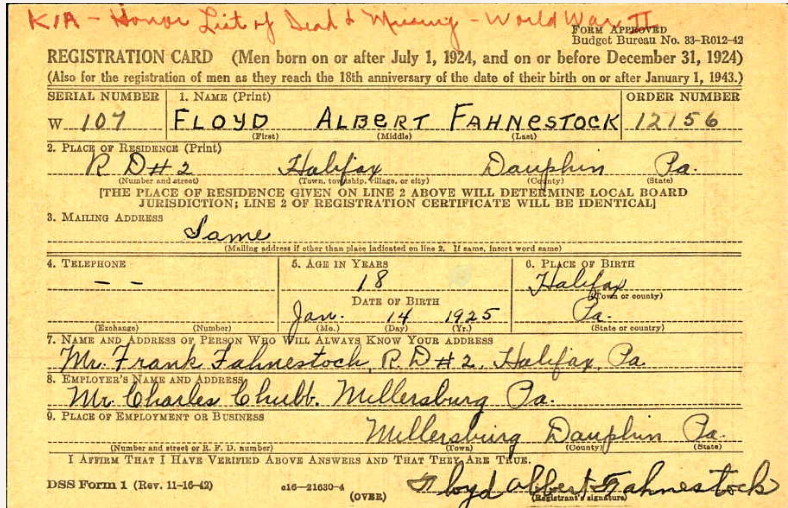 KIA - Honor List of Dead & Missing - World War II
FORM APPROVED
Budget Bureau No. 33-R012-42
REGISTRATION CARD (Men born on or after July 1, 1924, and on or before December 31, 1924)
(Also for the registration of men as they reach the 18th anniversary of the date of their birth on or after January 1, 1943.)
SERIAL NUMBER 1. NAME (Print) ORDER NUMBER
W 107 FLOYD ALBERT FAHNESTOCK 12156
(First) (Middle) (Last)
2. PLACE OF RESIDENCE (Print)
R D # 2 Halifax Dauphin Pa.
(Number and street) (Town, township, village, or city) (County) (State)
[THE PLACE OF RESIDENCE GIVEN ON LINE 2 ABOVE WILL DETERMINE LOCAL BOARD
JURISDICTION; LINE 2 OF REGISTRATION CERTIFICATE WILL BE IDENTICAL]
3. MAILING ADDRESS
Same
(Mailing address if other than place indicated on line 2. If same, insert word same)
4. TELEPHONE 5. AGE IN YEARS 6. PLACE OF BIRTH
- - 18 Halifax
DATE OF BIRTH (Town or county)
Jan. 14 1925 Pa.
(Exchange) (Number) (Mo.) (Day) (Yr.) (State or country)
7. NAME AND ADDRESS OF PERSON WHO WILL ALWAYS KNOW YOUR ADDRESS
Mr. Frank Fahnestock, R. D # 2, Halifax, Pa
8. EMPLOYER'S NAME AND ADDRESS
Mr. Charles Chubb. Millersburg Pa.
9. PLACE OF EMPLOYMENT OR BUSINESS
Millersburg Dauphin Pa.
(Number and street or R. F. D. number) (Town) (County) (State)
I AFFIRM THAT I HAVE VERIFIED ABOVE ANSWERS AND THAT THEY ARE TRUE.
DSS Form 1 (Rev. 11-16-42) c16-21630-4 (OVER) Floyd Albert Fahnestock
(Registrant's signature)